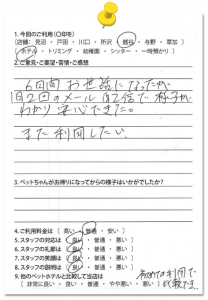 1.今回のご利用(〇印を)
[店舗：見沼・戸田・川口・所沢・越谷・与野・草加]
[ホテル・トリミング・幼稚園・シッター・一時預かり]
2.ご意見・ご要望・苦情・ご感想
6日間お世話になったが
1日2回のメール返信で様子が
わかり安心できた。
また利用したい。
3.ペットちゃんがお帰りになってからの様子はいかがでしたか?
4.ご利用料金は [ 高い・普通・安い ]
5.スタッフの対応は [ 良い・普通・悪い ]
6.スタッフの礼節は [ 良い・普通・悪い ]
7.スタッフの笑顔は [ 良い・普通・悪い ]
8.スタッフの説明は [ 良い・普通・悪い ]
9.他のペットホテルと比較して当店は
[ 非常に良い・良い・普通・やや悪い・悪い ]
初めての利用で
比較できず